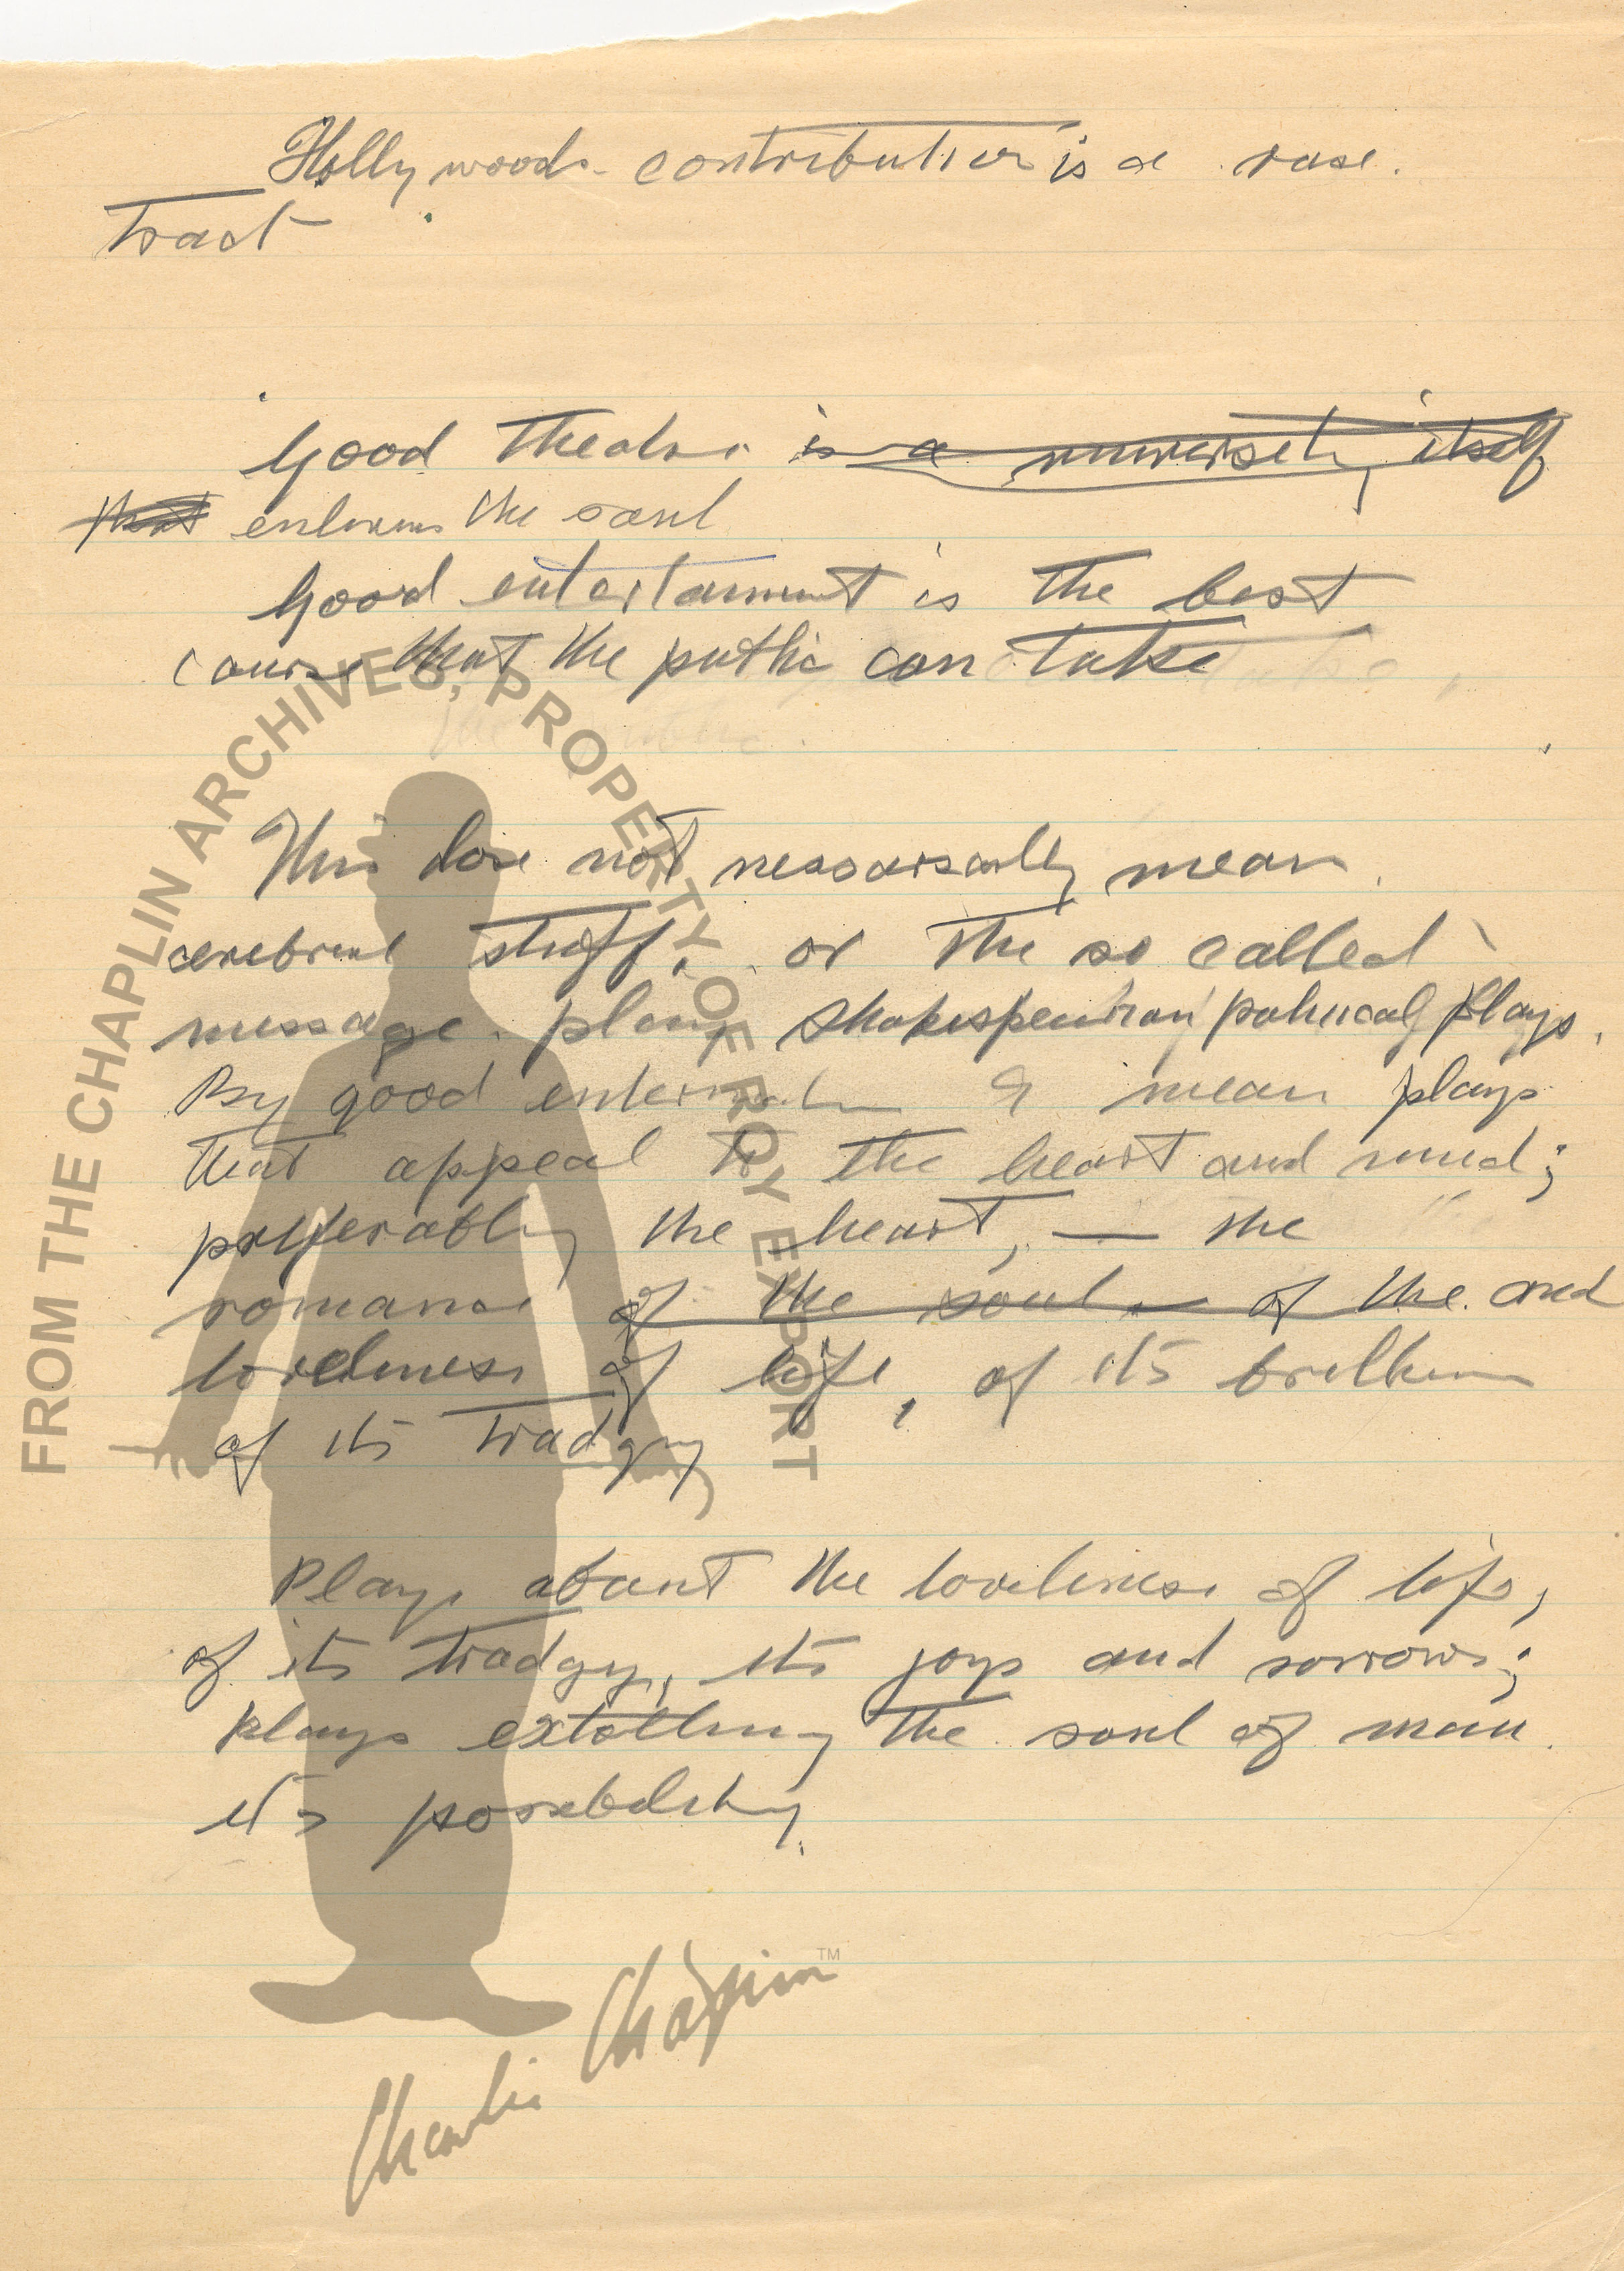 Hollywoods contribution is a rase
tract
Good theatre is a university itself
that enlivens the soul
Good entertainment is the best
course that the public can take
This dose not nessarsarily mean
cerebral stuff, or the so called
message plays Shakespearian political plays.
By good I mean plays
that appeal to the heart and mind;
preferably the heart, — the
romance of the soul — of the and
loveliness of life, of its
of its tradgy
Plays about the loveliness of life,
of its tradgy, its joys and sorrows;
plays extolling the soul of man
its possibility.
FROM THE CHAPLIN ARCHIVES, PROPERTY OF ROY EXPORT
Charlie Chaplin™